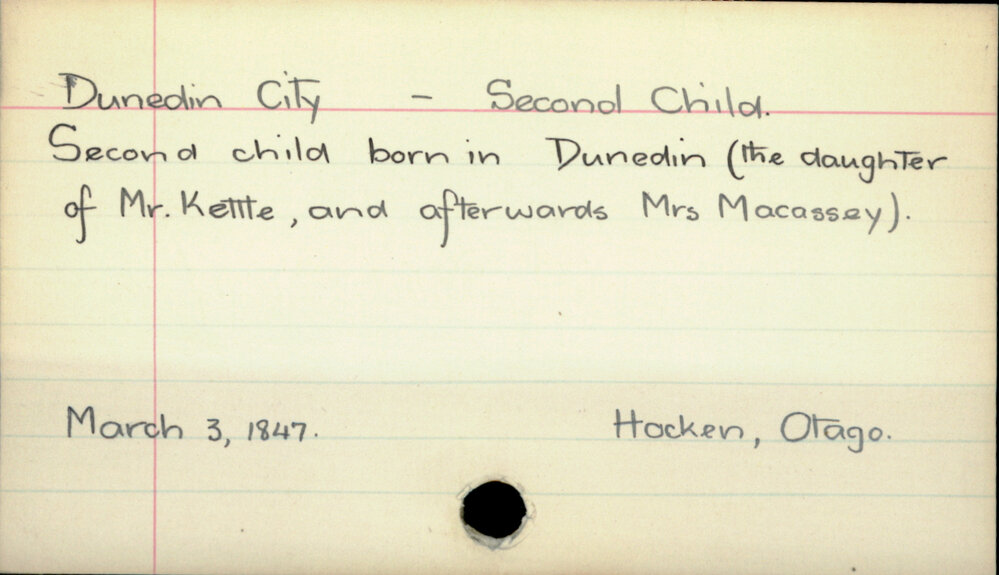 Dunedin City - Second Child.
Second child born in Dunedin (the daughter
of Mr. Kettle, and afterwards Mrs Macassey).
March 3, 1847. Hocken, Otago.